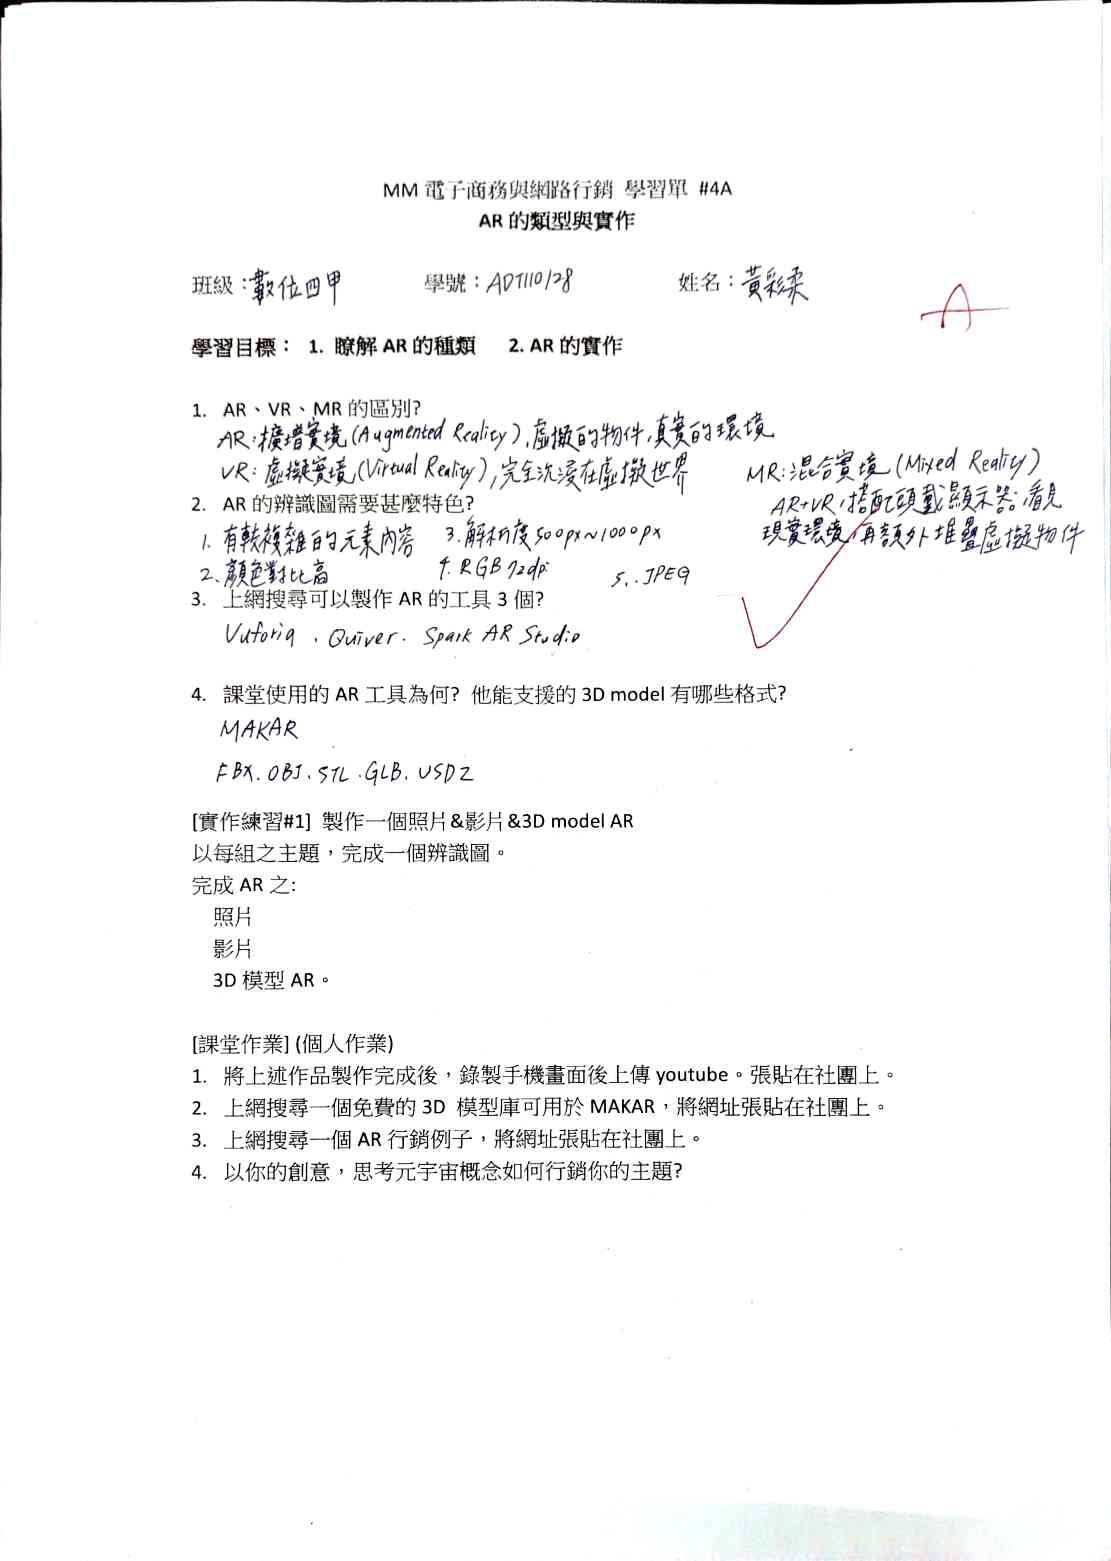 MM 電子商務與網路行銷 學習單 #4A
AR 的類型與實作
班級：數位四甲 學號：ADT110128 姓名：黃彩柔
A
學習目標： 1. 瞭解 AR 的種類 2. AR 的實作
1. AR、VR、MR 的區別?
AR:擴增實境(Augmented Reality),虛擬的物件,真實的環境
VR:虛擬實境,(Virtual Reality),完全沉浸在虛擬世界
MR:混合實境(Mixed Reality)
AR+VR,搭配頭戴顯示器,看見
現實環境,再額外堆疊虛擬物件
2. AR 的辨識圖需要甚麼特色?
1. 有較複雜的元素內容 3.解析度500px~1000px
2.顏色對比高 4.RGB 72dpi 5..JPEG
3. 上網搜尋可以製作 AR 的工具 3 個?
Vuforia、Quiver. Spark AR Studio
4. 課堂使用的 AR 工具為何? 他能支援的 3D model 有哪些格式?
MAKAR
FBX.OBJ.STL.GLB.USDZ
[實作練習#1] 製作一個照片&影片&3D model AR
以每組之主題，完成一個辨識圖。
完成 AR 之:
照片
影片
3D 模型 AR。
[課堂作業] (個人作業)
1. 將上述作品製作完成後，錄製手機畫面後上傳 youtube。張貼在社團上。
2. 上網搜尋一個免費的 3D 模型庫可用於 MAKAR，將網址張貼在社團上。
3. 上網搜尋一個 AR 行銷例子，將網址張貼在社團上。
4. 以你的創意，思考元宇宙概念如何行銷你的主題?